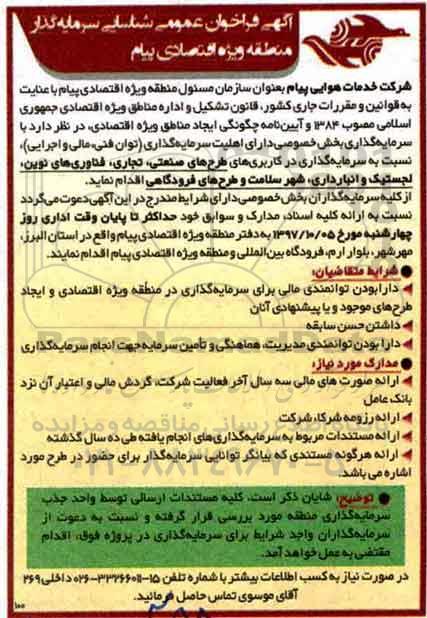 آگهی فراخوان عمومی شناسایی سرمایه‌گذار
منطقه ویژه اقتصادی پیام
شرکت خدمات هوایی پیام بعنوان سازمان مسئول منطقه ویژه اقتصادی پیام با عنایت
به قوانین و مقررات جاری کشور، قانون تشکیل و اداره مناطق ویژه اقتصادی جمهوری
اسلامی مصوب ۱۳۸۴ و آیین‌نامه چگونگی ایجاد مناطق ویژه اقتصادی، در نظر دارد با
سرمایه‌گذاری بخش خصوصی دارای اهلیت سرمایه‌گذاری (توان فنی، مالی و اجرایی)،
نسبت به سرمایه‌گذاری در کاربری‌های طرح‌های صنعتی، تجاری، فناوری‌های نوین،
لجستیک و انبارداری، شهر سلامت و طرح‌های فرودگاهی اقدام نماید.
از کلیه سرمایه‌گذاران بخش خصوصی دارای شرایط مندرج در این آگهی دعوت می‌گردد
نسبت به ارائه کلیه اسناد، مدارک و سوابق خود حداکثر تا پایان وقت اداری روز
چهارشنبه مورخ ۱۳۹۷/۱۰/۰۵ به دفتر منطقه ویژه اقتصادی پیام واقع در استان البرز،
مهرشهر، بلوار ارم، فرودگاه بین‌المللی و منطقه ویژه اقتصادی پیام اقدام نمایند.
شرایط متقاضیان:
دارا بودن توانمندی مالی برای سرمایه‌گذاری در منطقه ویژه اقتصادی و ایجاد
طرح‌های موجود و یا پیشنهادی آنان
داشتن حسن سابقه
دارا بودن توانمندی مدیریت، هماهنگی و تأمین سرمایه جهت انجام سرمایه‌گذاری
مدارک مورد نیاز:
ارائه صورت های مالی سه سال آخر فعالیت شرکت، گردش مالی و اعتبار آن نزد
بانک عامل
ارائه رزومه شرکا، شرکت
ارائه مستندات مربوط به سرمایه‌گذاری‌های انجام یافته طی ده سال گذشته
ارائه هرگونه مستندی که بیانگر توانایی سرمایه‌گذار برای حضور در طرح مورد
اشاره می باشد.
توضیح: شایان ذکر است، کلیه مستندات ارسالی توسط واحد جذب
سرمایه‌گذاری منطقه مورد بررسی قرار گرفته و نسبت به دعوت از
سرمایه‌گذاران واجد شرایط برای سرمایه‌گذاری در پروژه فوق، اقدام
مقتضی به عمل خواهد آمد.
در صورت نیاز به کسب اطلاعات بیشتر با شماره تلفن ۱۵-۳۳۲۶۶۰۱۱-۰۲۶ داخلی ۲۶۹
آقای موسوی تماس حاصل فرمائید.
۱۰۰